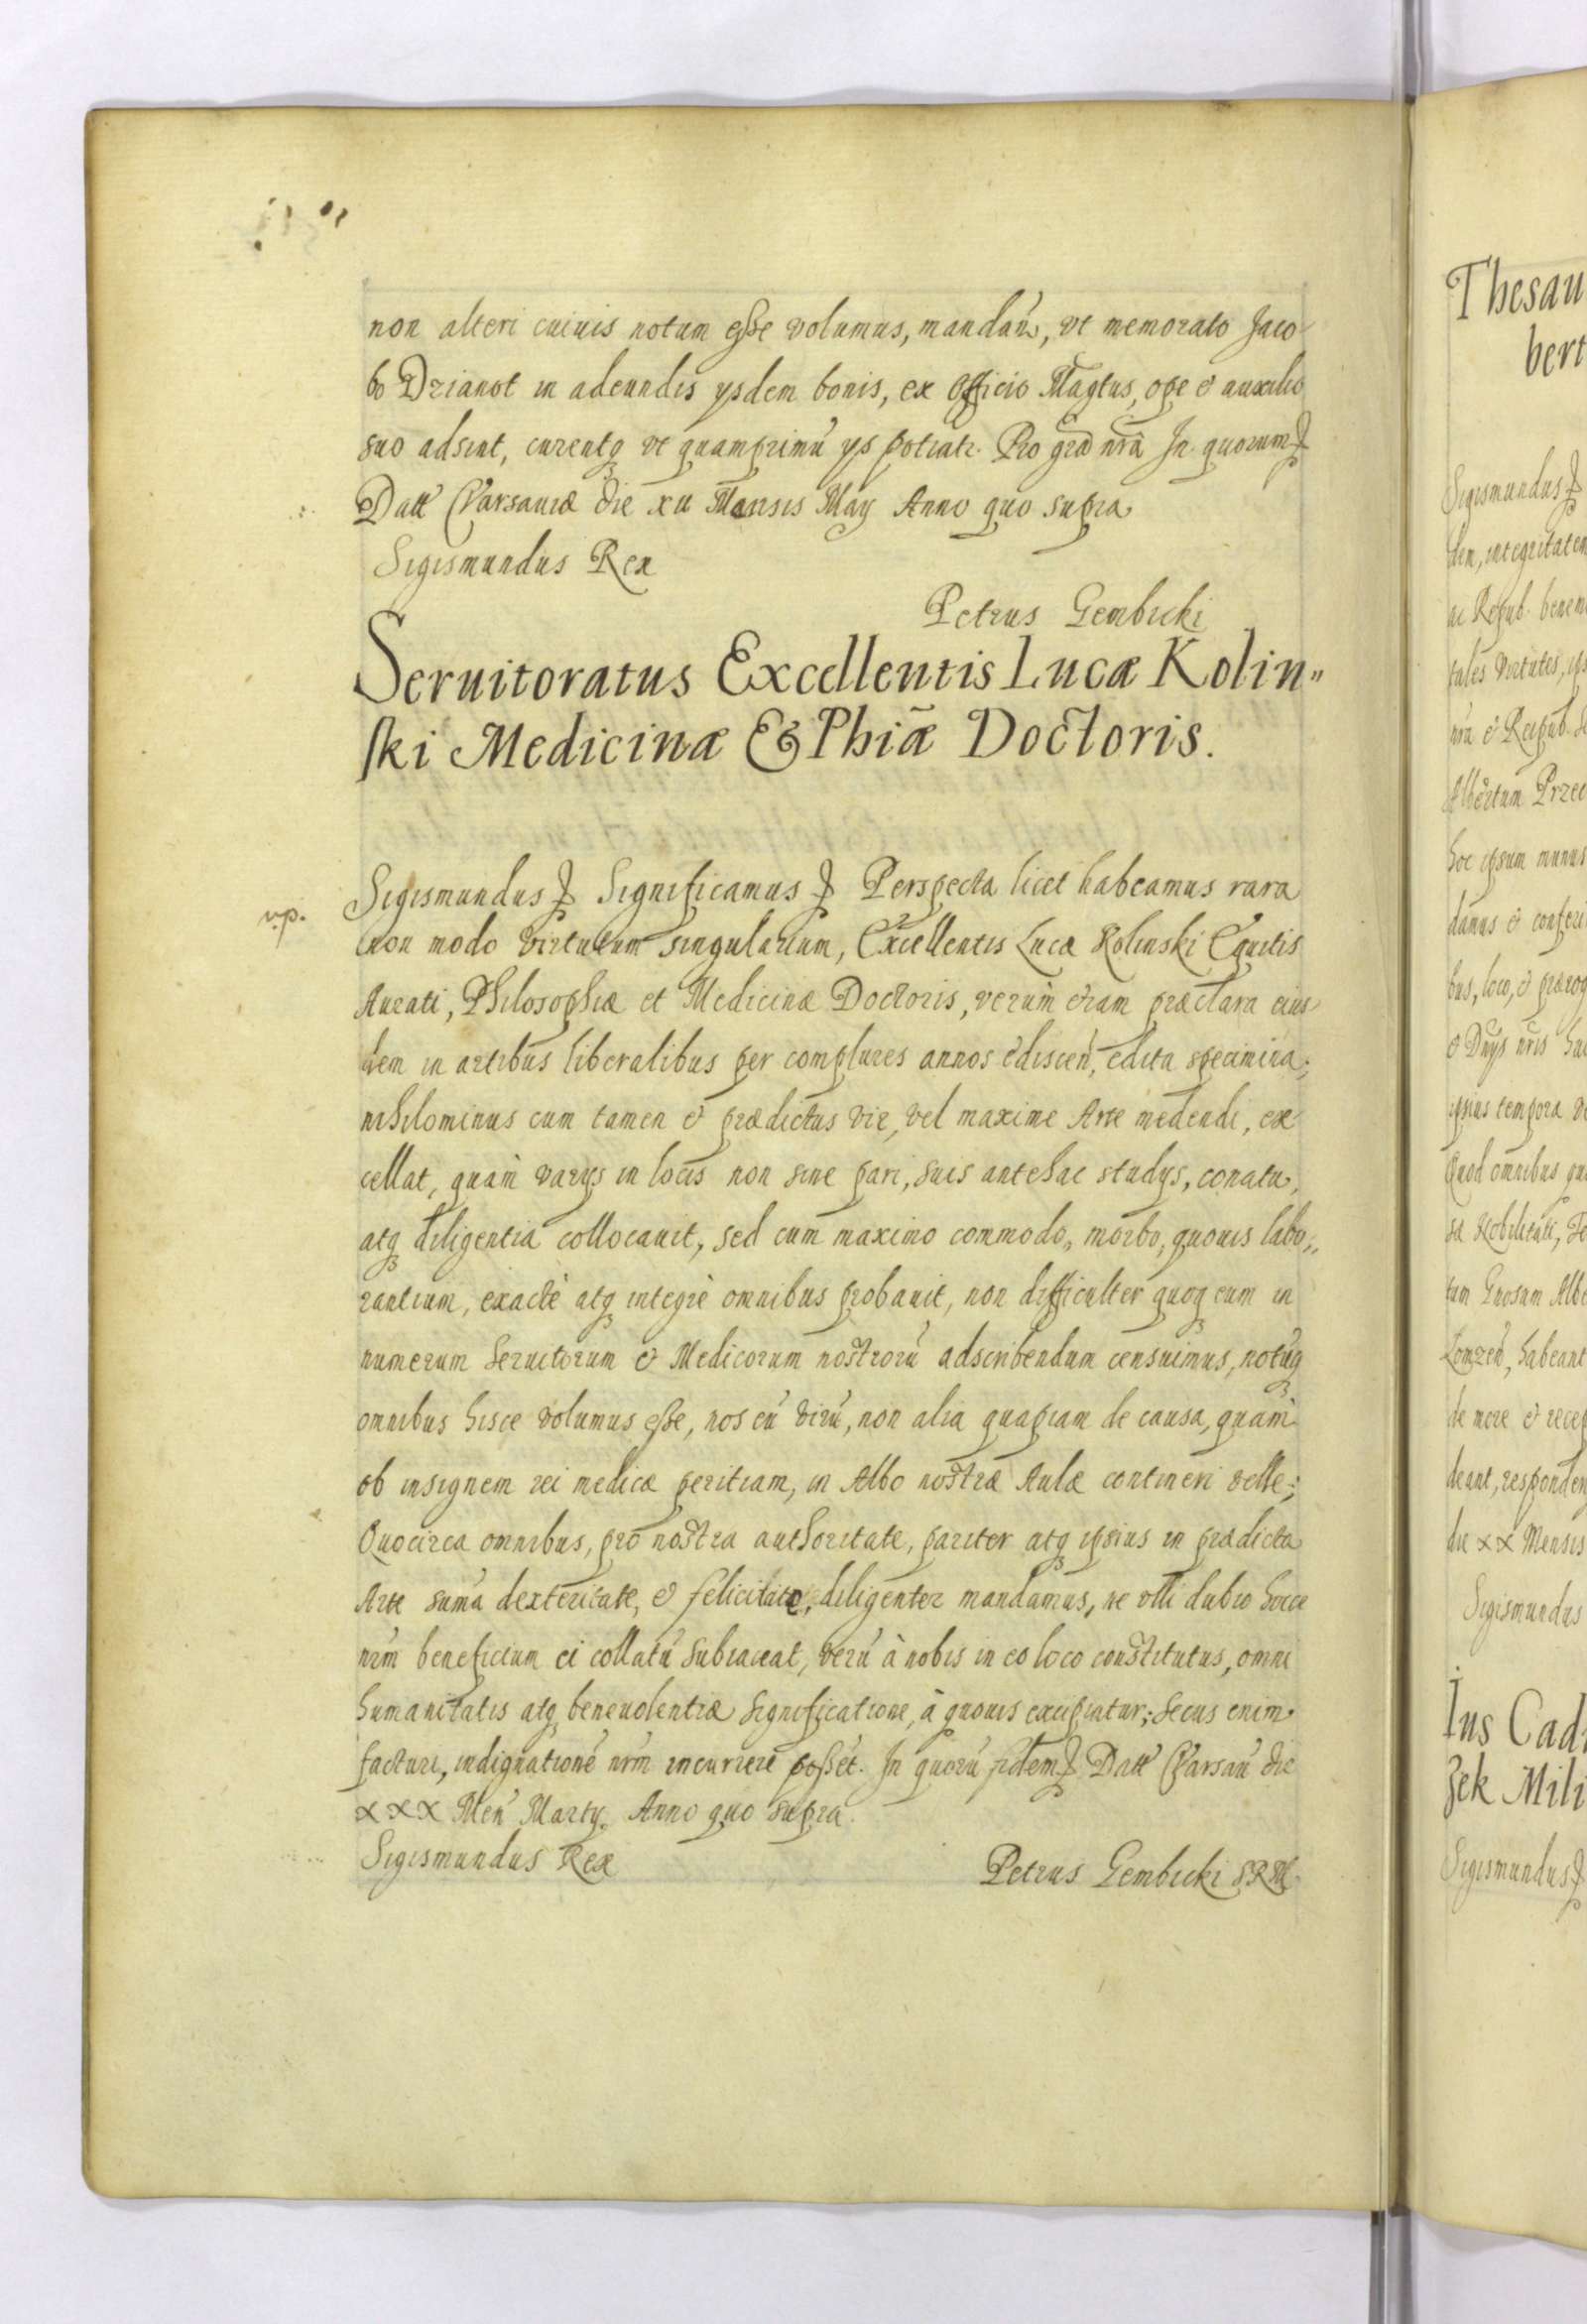 non alteri cuiuis notum esse volumus, mandañ, vt memorato Jaco
bo Drianot in adeundis ysdem bonis, ex officio Magtus, ope & auxilio
suo adsint, curentq vt quamprimũ ys potiatr. Pro grã nrã In quorum
Datt Varsauiæ die xii Mensis May Anno quo supra
Sigismundus Rex
Petrus Gembicki
Seruitoratus Excellentis Lucæ Kolin„
ski Medicinæ & Phiæ Doctoris.
v.p.
Sigismundus Significamus Perspecta licet habeamus rara
non modo virtutum singularium, Excellentis Lucæ Kolinski Equitis
Aurati, Philosophiæ et Medicinæ Doctoris, verùm etiam præclara eius
dem in artibus liberalibus per complures annos ediscen, edita specimina;
nihilominus cum tamen & prædictus vir, vel maxime Arte medendi, ex
cellat, quàm varys in locis non sine pari, suis antehac studys, conatu,
atq diligentia collocauit, sed cum maximo commodo, morbo, quouis labo„
rantium, exactè atq integrè omnibus probauit, non difficulter quoq eum in
numerum Seruitorum & Medicorum nostrorũ adscribendum censuimus, notũq
omnibus hisce volumus esse, nos eũ virũ, non alia quapiam de causa, quàm
ob insignem rei medicæ peritiam, in Albo nostræ Aulæ contineri velle;
Quocirca omnibus, pro nostra authoritate, pariter atq ipsius in prædicta
Arte sum̃a dexteritate, & felicitate, diligenter mandamus, ne vlli dubio hocce
nrm̃ beneficium ei collatũ subiaceat, verũ à nobis in eo loco constitutus, omni
humanitatis atq beneuolentiæ significatione, à quouis excipiatur; Secus enim
facturi, indignationẽ nrm̃ incurrere possẽt. In quorũ fidem Datt Varsaũ die
xxx Meñ Marty. Anno quo supra.
Sigismundus Rex
Petrus Gembicki SRM
Thesau
bert
Sigismundus
dem, integritatem
ac Repub. benem
tales virtutes, ips
nrã & Reipub.
Albertum Przec
hoc ipsum munus
damus & conferi
bus, loco, & prærog
& Dnys nris
ipsius tempora
Quod omnibus
sa Nobilitate,
tum Gnosum Albe
habeant
de more & recep
deant, responden
die xx Mensis
Sigismundus
Ius Cad
zek Mili
Sigismundus